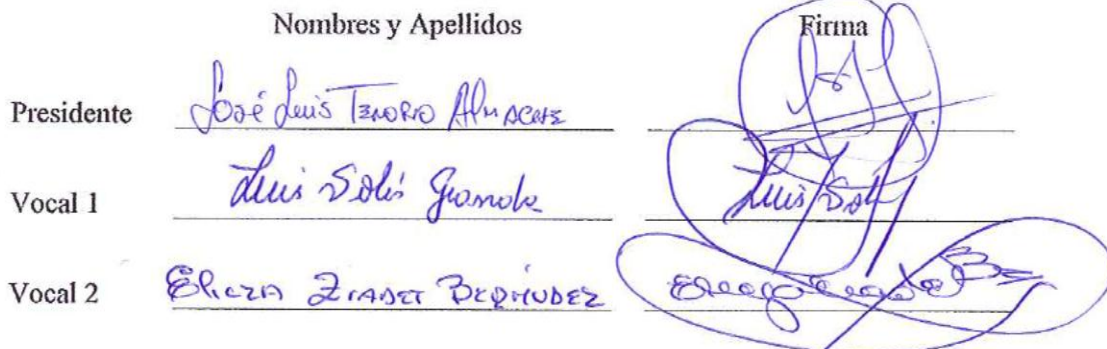 Nombres y Apellidos Firma
Presidente José Luis Tenorio Almache
Vocal 1 Luis Solís Granda Luis Sol
Vocal 2 Bermudez